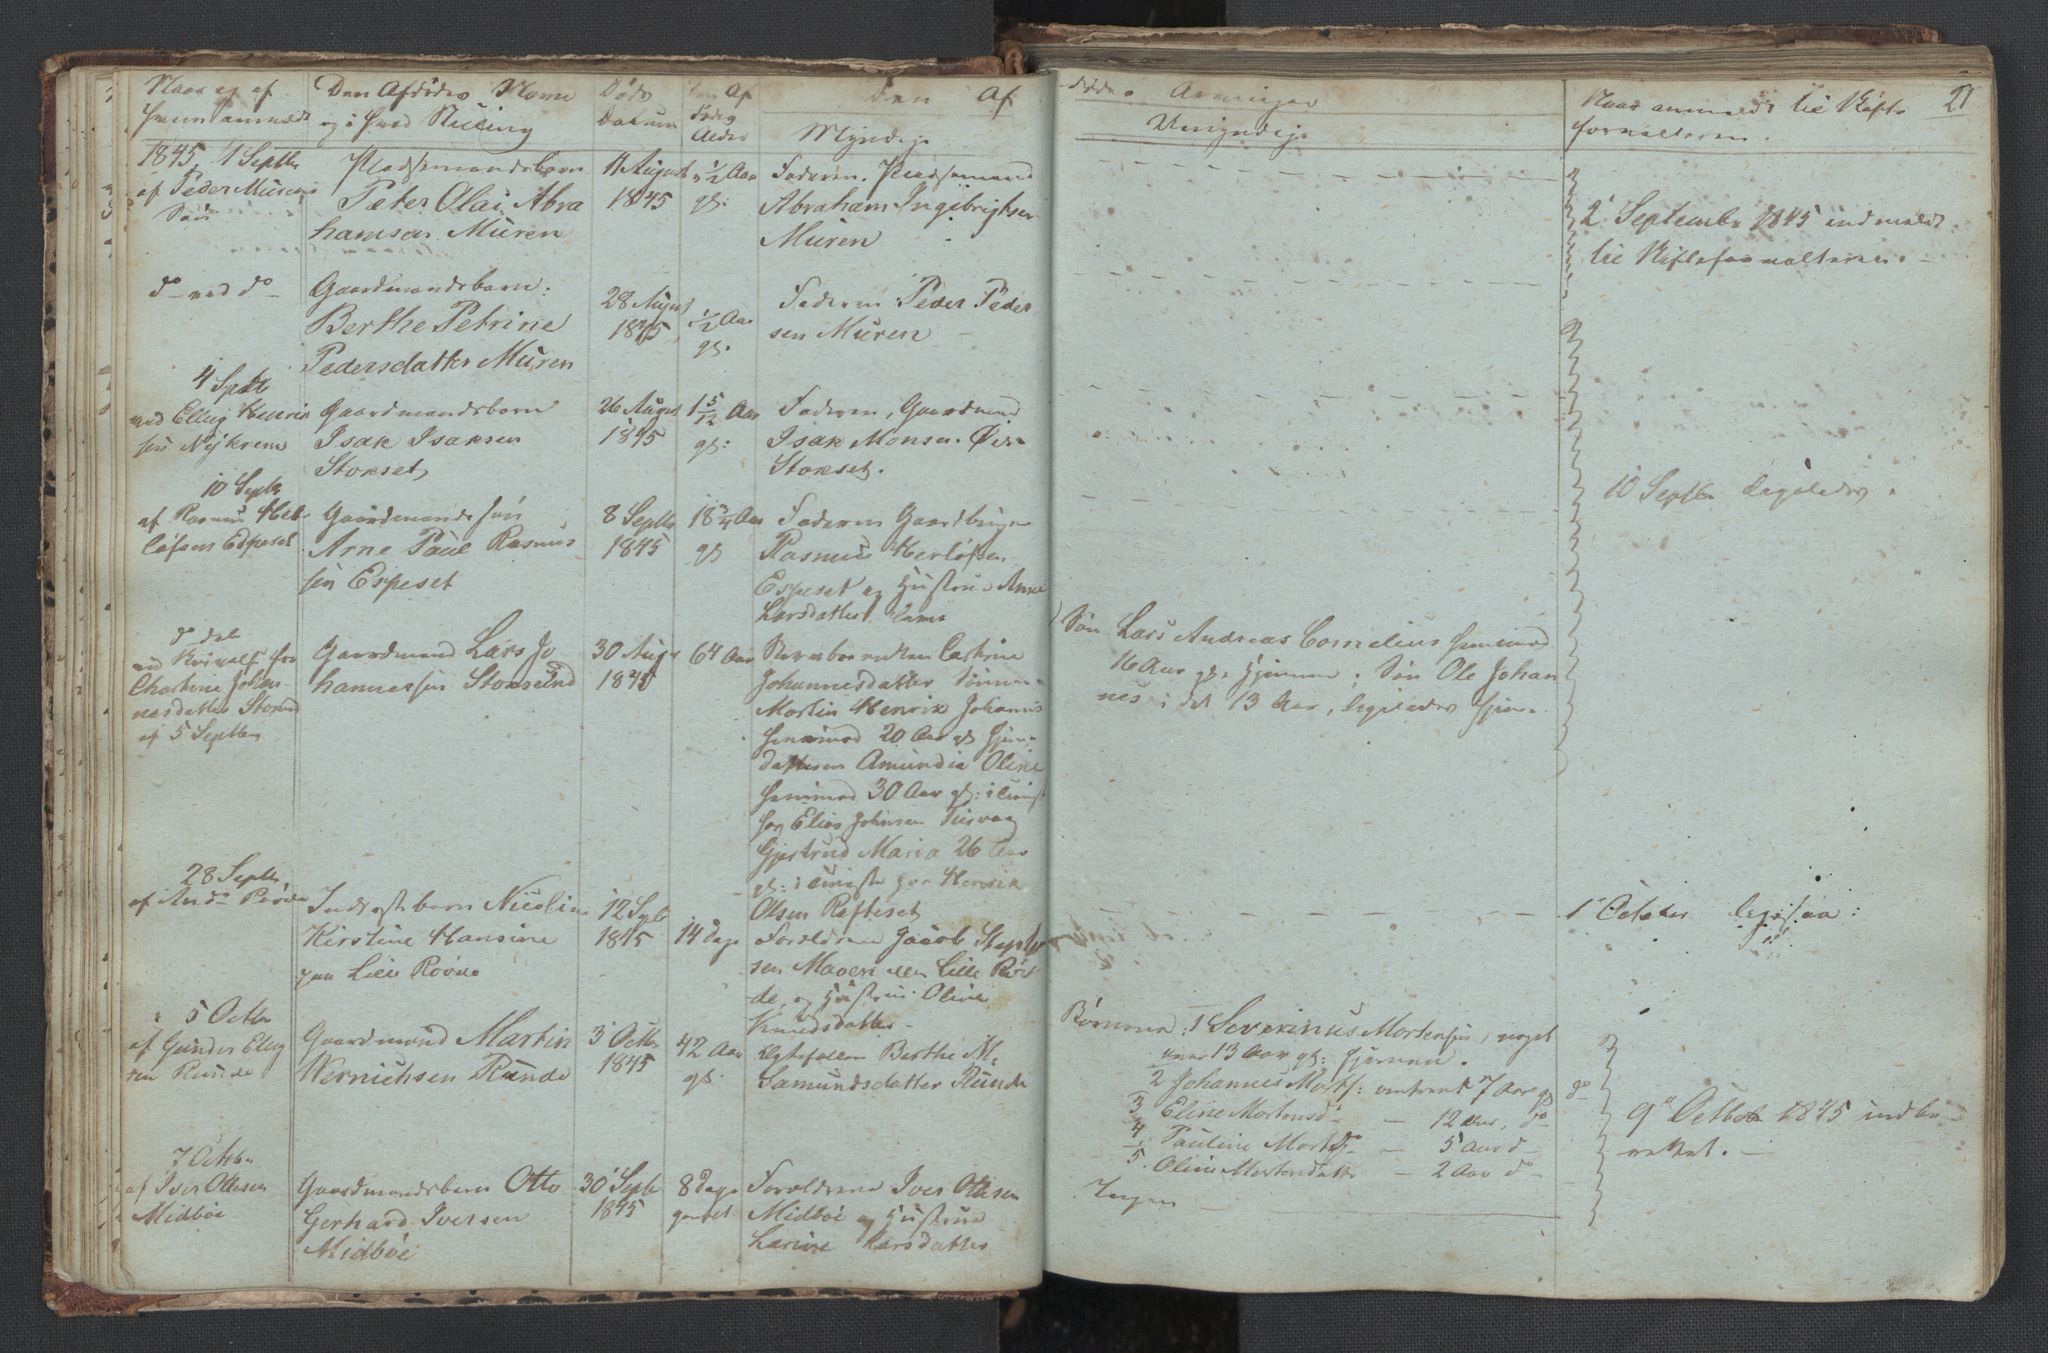 Naar og af
hvem anmeldt
Den Afdødes Navn
og i hvad Stilling
Døds
Datum
den Af
dødes
Alder
Den Af
Myndige
dødes Arvinger
Umyndige
Naar anmeldt til Skifte
forvalteren.
21
1845, 1 Septbr
af Peder Murens
Søn
Pladsemandsbarn
Peter Olai Abra
hamsen Muren
11 August
1845
1/2 Aar
gl:
Faderen, Pladsemand
Abraham Ingebrigtsen
Muren
2 Septembr 1845 indmeldt
til Skifteforvalteren.
do ved do
Gaardmandsbarn:
Berthe Petrine
Pedersdatter Muren
28 August
1845
1/2 Aar
gl.
Faderen Peder Peder
sen Muren
4 Septb
ved Elling Henrik
sen Myklem
Gaardmandsbarn
Isak Isaksen
Stokset
26 August
1845
1 5/12 Aar
gl:
Faderen, Gaardmand
Isak Monsen
Stokset.
10 Septbr
af Rasmus Her
løfsen Espeset
Gaardmands søn
Arne Paul Rasmus
sen Espeset
8 Septbr
1845
18 3/4 Aar
gl
Faderen Gaardbruger
Rasmus Herløfsen
Espeset og Hustrue Anne
Larsdatter
10 Septbr ligeledes.
do dal
ved Skrivelse fra
Chartrine Johan-
nesdatter Storsund
af 5 Septbr
Gaardmand Lars Jo
hannessen Storsund
30 Augs
1845
64 Aar
Cathrine
Johannesdatter Sønnen
Martin Henrik Johannes
20 Aar gl hjemme
datteren Amundia Oline
30 Aar gl: i Tieneste
hos Elias Johnsen
Gjertrud Maria 26 Aar
gl: i tieneste hos Henrik
Olsen Røfteset
Søn Lars Andreas Cornelius
16 Aar gl. hjemme; Søn Ole Johan
nes i det 13 Aar, ligeledes hjem.
28 Septbr
af Røvde
Inderstbarn Nicoline
Kirstine Hansine
paa Lille Røvde
12 Septb
1845
14 dage
Forældrene Jacob Stephen
sen Lille Røv
de, og Hustrue Oline
Knudsdatter
1 October ligesaa:
5 Octbr
af Gunder Elling
sen Runde
Gaardmand Martin
Wernichsen Runde
3 Octbr
1845
42 Aar
gl.
Berthe M.
Samundsdatter Runde
Børnene: 1 Severinus Mortensen, noget
over 13 Aar gl: hjemme.
2 Johannes Morts: omtrent 7 Aar gl do
3 Eline Mortensd - 12 Aar, do
4. Pauline Mortsd - 5 Aar do
5. Oline Mortensdatter - 2 Aar do
9 October 1845 indbe
rettet.
7 Octbr
af Iver Ottesen
Midbøe
Gaardmandsbarn Otto
Gerhard Iversen
Midbøe
30 Septb
1845
8 dage
gammel
Forældrene Iver Ottesen
Midbøe og Hustrue
Larine Larsdatter
Ingen